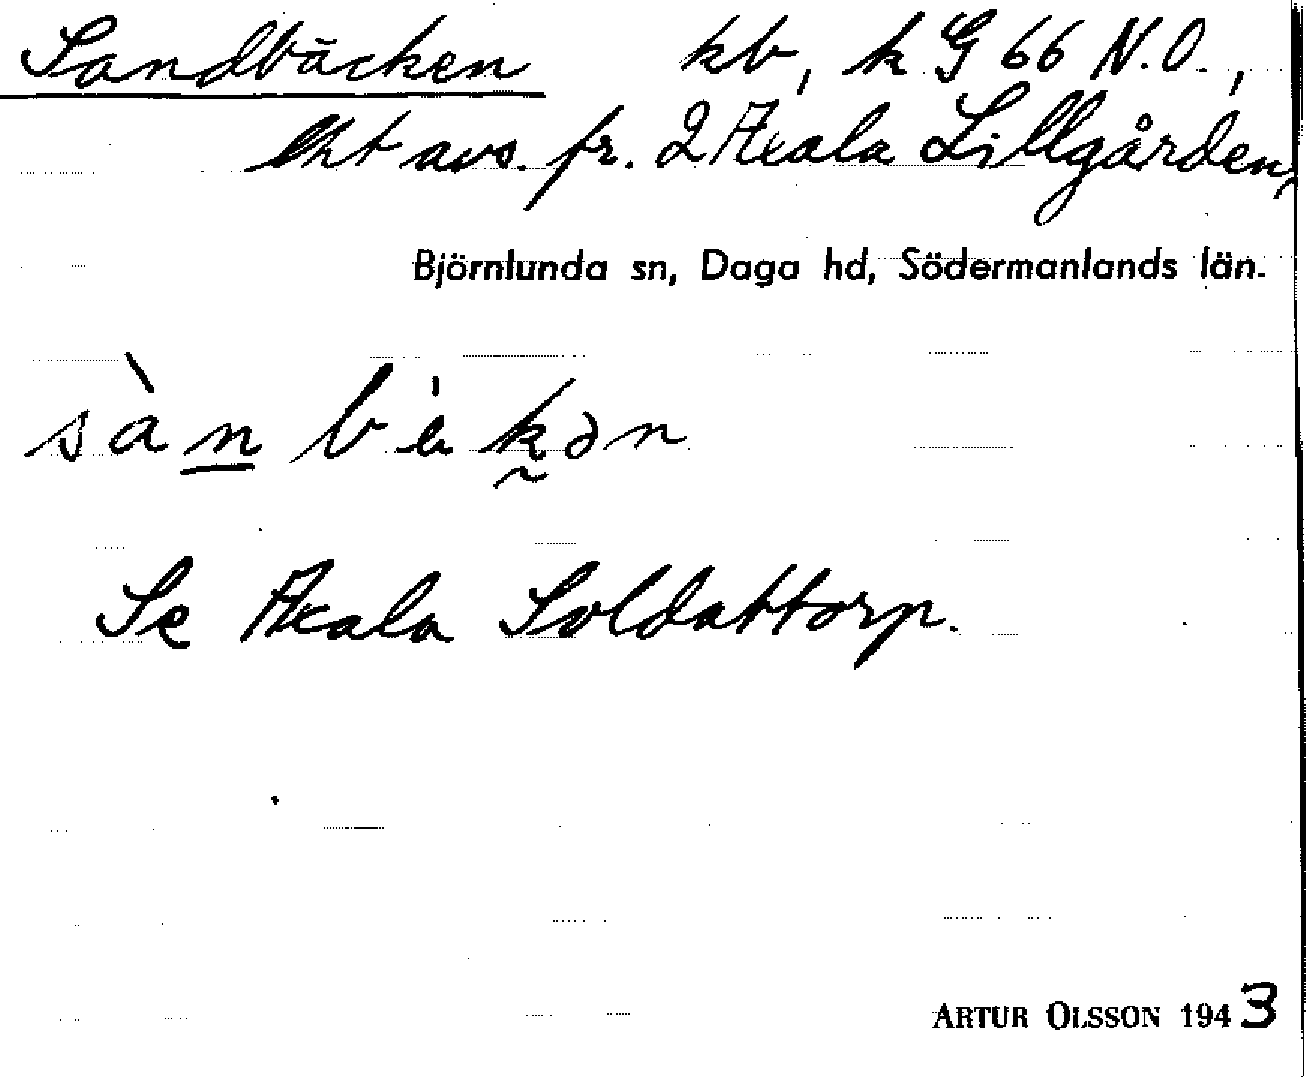 Sandbäcken kb, k G 66 N.O.,
lht avs. fr. 2 Axala Lillgården,
Björnlunda sn, Daga hd, Södermanlands län.
sàn bèkən
Se Axala Soldattorp.
ARTUR OLSSON 1943